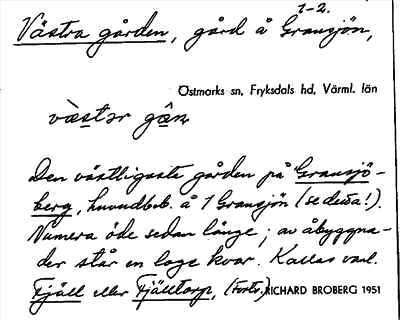 1-2.
Västra gården, gård å Gransjön,
Östmarks sn, Fryksdals hd, Värml. län
Den västligaste gården på Gransjö-
berg, huvudbeb. å 1 Gransjön (se dessa!).
Numera öde sedan länge; av åbyggna-
der står en loge kvar. Kallas vanl.
Fjäll eller Fjälltorp, (Forts.) RICHARD BROBERG 1951